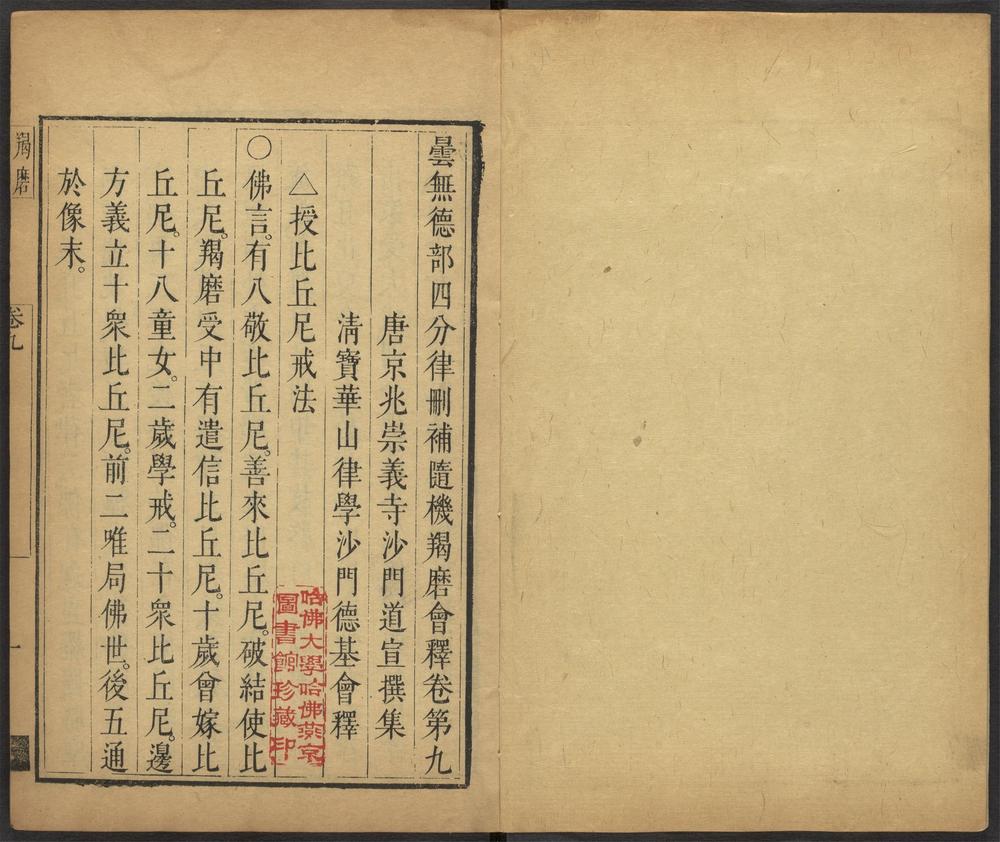 曇無德部四分律刪補隨機羯磨會釋卷第九
唐京兆崇義寺沙門道宣撰集
清寶華山律學沙門德基會釋
△授比丘尼戒法
○佛言。有八敬比丘尼。善來比丘尼。破結使比
丘尼。羯磨受中有遣信比丘尼。十歲曾嫁比
丘尼。十八童女。二歲學戒。二十衆比丘尼。邊
方義立十衆比丘尼。前二唯局佛世。後五通
於像末。
哈佛大學哈佛燕京
圖書館珍藏印
羯磨
卷九
一